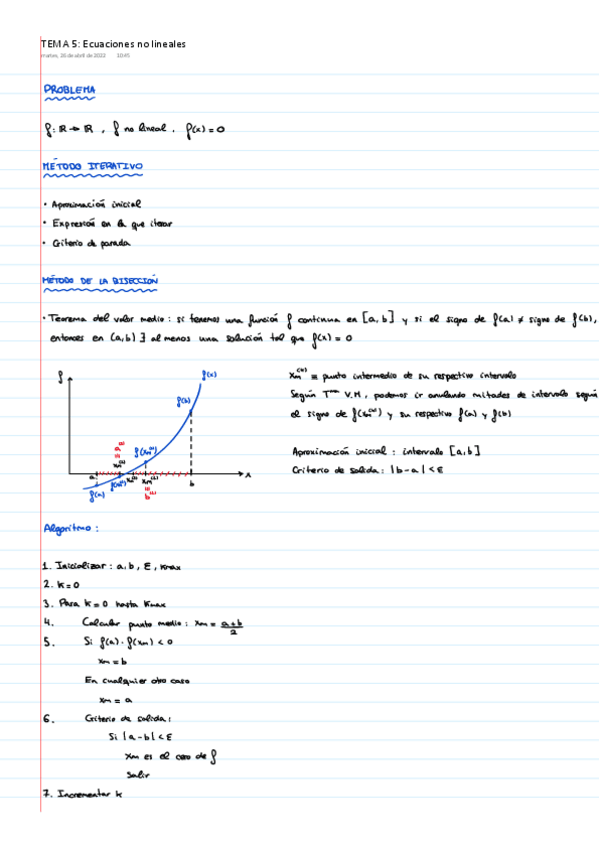 TEMA 5: Ecuaciones no lineales
martes, 26 de abril de 2022 10:45
PROBLEMA
f: ℝ → ℝ , f no lineal . f(x) = 0
MÉTODO ITERATIVO
• Aproximación inicial
• Expresión en la que iterar
• Criterio de parada
MÉTODO DE LA BISECCIÓN
• Teorema del valor medio : si tenemos una función f continua en [a, b] y si el signo de f(a) ≠ signo de f(b),
entonces en (a, b) ∃ al menos una solución tal que f(x) = 0
f
f(x)
f(b)
f(xm⁽⁰⁾)
a
b
x
f(a)
xm⁽ᵏ⁾ ≡ punto intermedio de su respectivo intervalo
Según Tᵐᵃ V.M , podemos ir anulando mitades de intervalo según
el signo de f(xm⁽ᵏ⁾) y su respectivo f(a) y f(b)
Aproximación inicial : intervalo [a, b]
Criterio de salida : |b - a| < ε
Algoritmo :
1. Inicializar : a, b, ε, kmax
2. k = 0
3. Para k = 0 hasta kmax
4. Calcular punto medio : xm = a+b/2
5. Si f(a) · f(xm) < 0
xm = b
En cualquier otro caso
xm = a
6. Criterio de salida :
Si |a - b| < ε
xm es el cero de f
Salir
7. Incrementar k